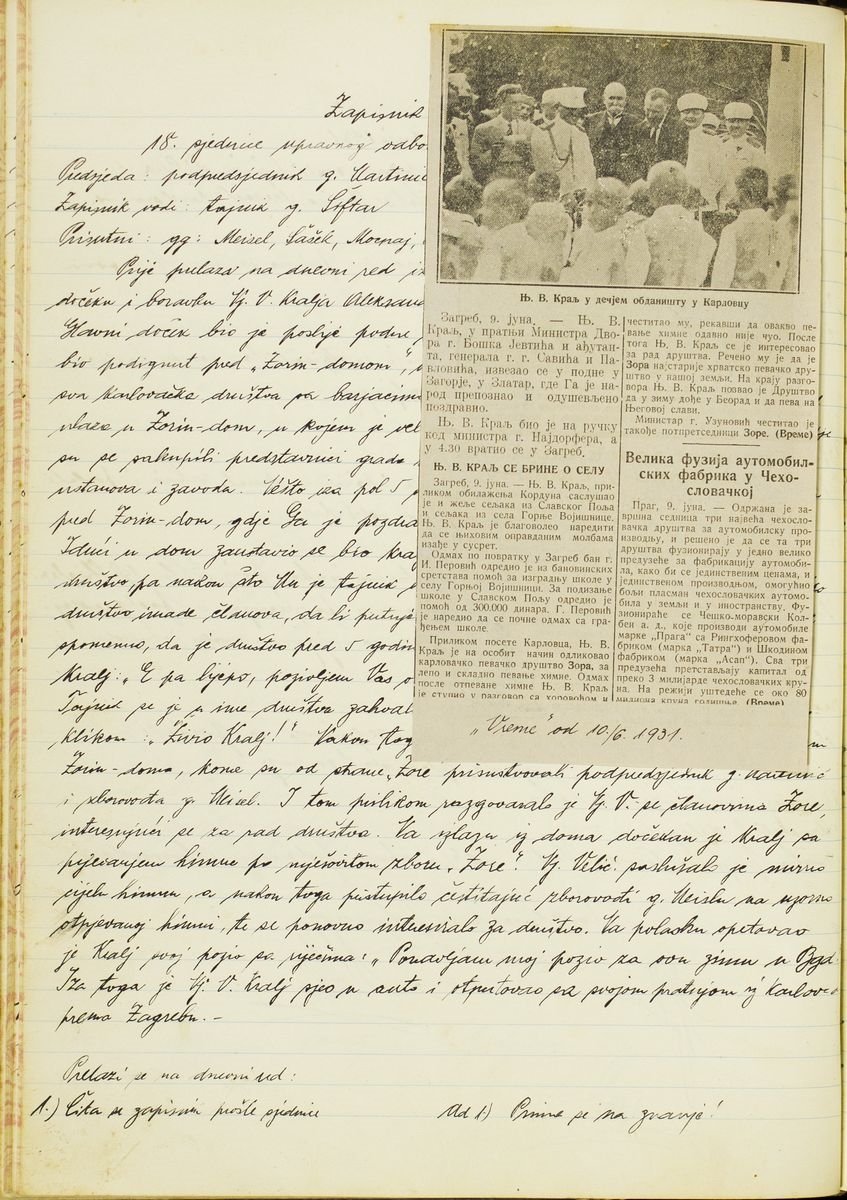 Zapisnik
18. sjednice upravnog odbo
Predsjeda: podpredsjednik g. Martinić
Zapisnik vodi: tajnik g. Šiftar
Prisutni: gg: Meisel, Sášek, Mocnaj,
Prije prelaza na dnevni red iz
dočeku i boravku Nj. V. Kralja Aleksand
Glavni doček bio je poslije podne
bio podignut pred „Zorin-domom",
sva karlovačka društva sa barjacima
ulaza u Zorin-dom, u kojem je vel
su se sakupili predstavnici grada
ustanova i zavoda. Nešto iza pol 5
pred Zorin-dom, gdje Ga je pozdra
Idući u dom zaustavio se bio kralj
društvo, pa nakon što Mu je tajnik
društvo imade članova, da li putuje
spomenuo, da je društvo pred 5 godin
Kralj: „E pa lijepo, pozivljem Vas
Tajnik se je u ime društva zahval
klikom: „Živio Kralj!" Nakon toga
Zorin-doma, kome su od strane „Zore" prisustvovali podpredsjednik g. Martinić
i zborovođa g. Meisel. I tom prilikom razgovarao je Nj. V. se članovima Zore,
interesujući se za rad društva. Na izlazu iz doma dočekan je Kralj sa
pjevanjem himne po mješovitom zboru „Zore". Nj. Velič. saslušalo je mirno
cijelu himnu, a nakon toga pristupilo čestitajuć zborovođi g. Meislu na uzorno
otpjevanoj himni, te se ponovno interesiralo za društvo. Na polasku opetovao
je Kralj svoj poziv sa riječima: „Ponavljam moj poziv za ovu zimu u Bgd.
Iza toga je Nj. V. Kralj sjeo u auto i otputovao sa svojom pratnjom iz Karlov
prema Zagrebu. –
Prelazi se na dnevni red:
1.) Čita se zapisnik prošle sjednice
Ad 1) Prima se na znanje!
Њ. В. Краљ у дечјем обданишту у Карловцу
Загреб, 9. јуна. — Њ. В.
Краљ, у пратњи Министра Дво-
ра г. Бошка Јевтића и ађутан-
та, генерала г. г. Савића и Па-
вловића, извезао се у подне у
Загорје, у Златар, где Га је на-
род препознао и одушевљено
поздравио.
Њ. В. Краљ био је на ручку
код министра г. Најдорфера, а
у 4.30 вратио се у Загреб.
Њ. В. КРАЉ СЕ БРИНЕ О СЕЛУ
Загреб, 9. јуна. — Њ. В. Краљ, при-
ликом обилажења Кордуна саслушао
је и жеље сељака из Славског Поља
и сељака из села Горње Војишнице.
Њ. В. Краљ је благоволео наредити
да се њиховим оправданим молбама
изађе у сусрет.
Одмах по повратку у Загреб бан г.
И. Перовић одредио је из бановинских
средстава помоћ за изградњу школе у
селу Горњој Војишници. За подизање
школе у Славском Пољу одредио је
помоћ од 300.000 динара. Г. Перовић
је наредио да се почне одмах са гра-
ђењем школе.
Приликом посете Карловца, Њ. В.
Краљ је на особит начин одликовао
карловачко певачко друштво Зора, за
лепо и складно певање химне. Одмах
после отпеване химне Њ. В. Краљ
је ступио у разговор са хоровођом и
честитао му, рекавши да овакво пе-
вање химне одавно није чуо. После
тога Њ. В. Краљ се је интересовао
за рад друштва. Речено му је да је
Зора најстарије хрватско певачко дру-
штво у нашој земљи. На крају разго-
вора Њ. В. Краљ позвао је Друштво
да у зиму дође у Београд и да пева на
Његовој слави.
Министар г. Узуновић честитао је
такође потпретседници Зоре. (Време)
Велика фузија аутомобил-
ских фабрика у Чехо-
словачкој
Праг, 9. јуна. — Одржана је за-
вршна седница три највећа чехосло-
вачка друштва за аутомобилску про-
изводњу, и решено је да се та три
друштва фузионирају у једно велико
предузеће за фабрикацију аутомоби-
ла, како би се јединственим ценама, и
јединственом производњом, омогућио
бољи пласман чехословачких аутомо-
била у земљи и у иностранству. Фу-
зионираће се Чешко-моравски Кол-
бен а. д., које производи аутомобиле
марке „Прага" са Рингхоферовом фа-
бриком (марка „Татра") и Шкодином
фабриком (марка „Асап"). Сва три
предузећа претстављају капитал од
преко 3 милијарде чехословачких кру-
на. На режији уштедеће се око 80
милиона круна годишње. (Време)
„Vreme" od 10/6. 1931.